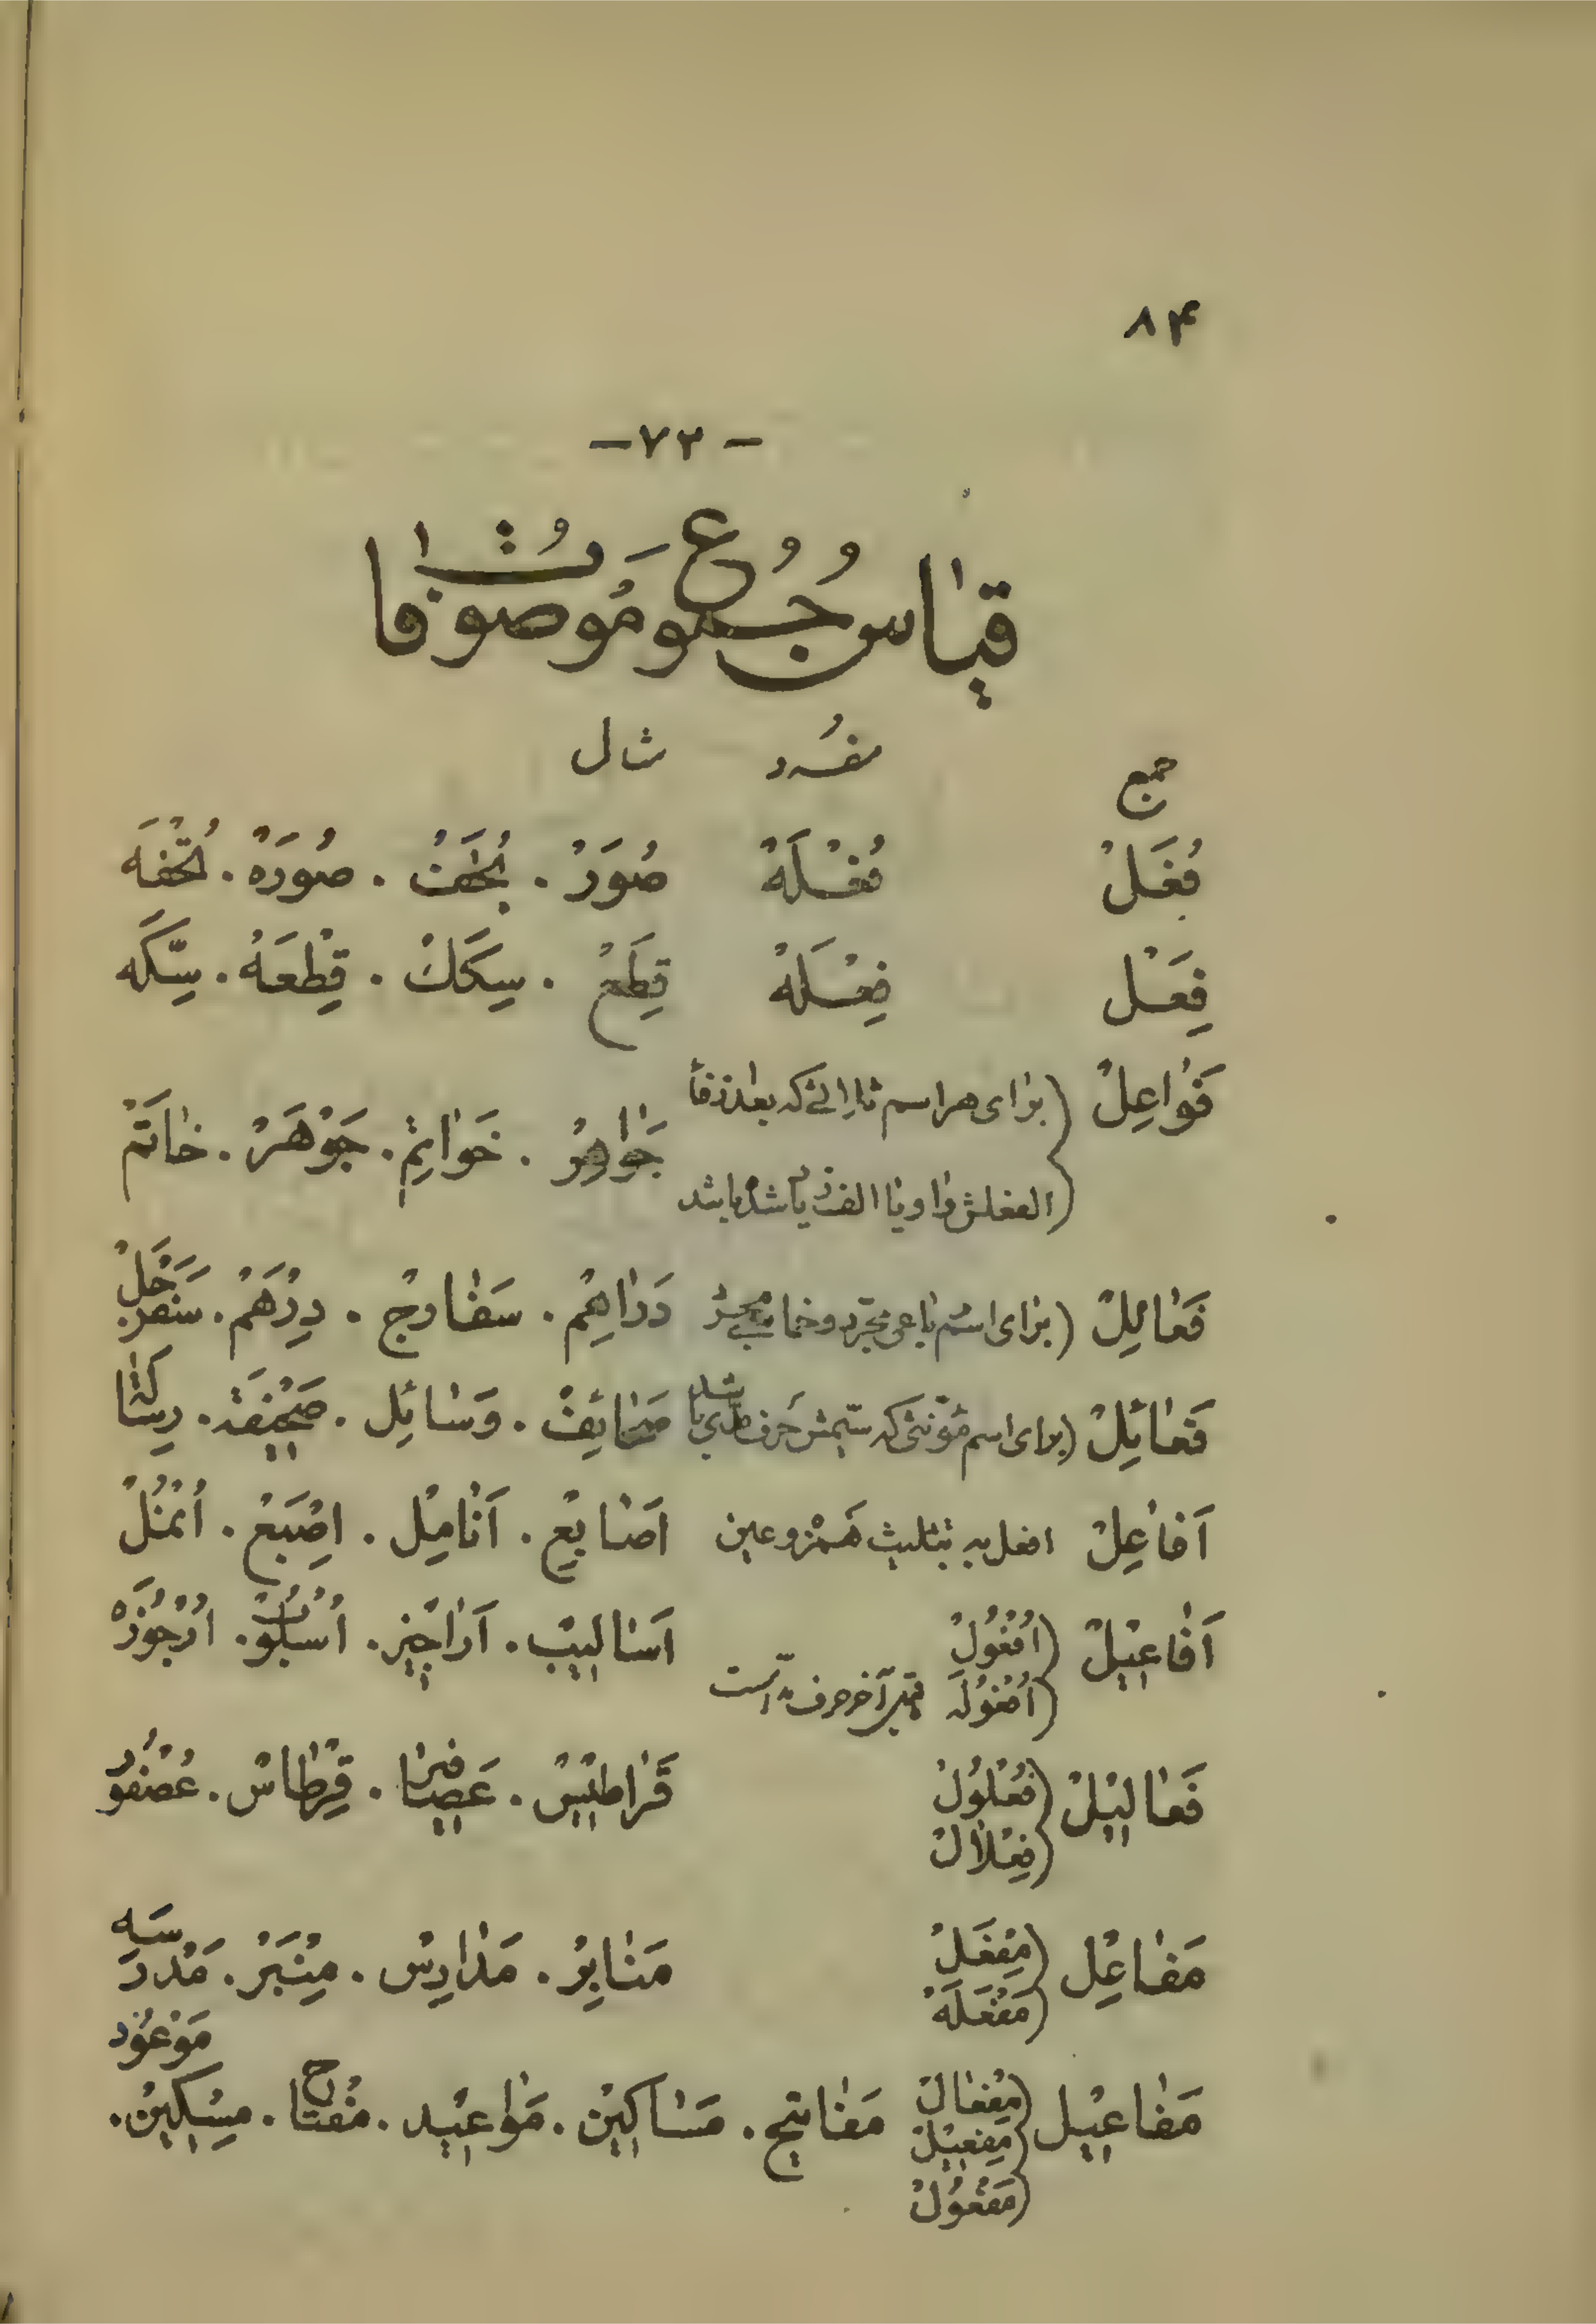 ۸۴
- ۷۳ -
قیاس جُموع مَوصوفات
جمع مفرد مثال
فُعَلْ فُعْلَة صُوَرْ . تُحَفْ . صُورَةْ . تُحْفَه
فِعَلْ فِعْلَة قِطَعْ . سِکَكْ . قِطْعَهْ . سِکَّه
فَوٰاعِلْ (برای هر اسم که بعد از فاء
الفعلش واو یا الف زیاد شده باشد) جَوٰاهِرْ . خَوٰاتِمْ . جَوْهَرْ . خٰاتَمْ
فَعٰالِلْ (برای اسم رباعی مجرّد و خماسی مجرد دَرٰاهِمْ . سَفٰارِجْ . دِرْهَمْ . سَفَرْجَلْ
فَعٰائِلْ (برای اسم مؤنثی که سیّمش حرف مدّی باشد صَحٰائِفْ . وَسٰائِل . صَحیْفَة . رِسٰالَة
اَفٰاعِلْ افعل به تثلیث هَمْزه و عین اَصٰابِعْ . اَنٰامِلْ . اِصْبَعْ . اُنْمُلْ
اَفٰاعیْلْ (اُفْعُولْ اُفْعُولَه قبل آخر حرف مدّ است اَسٰالیبْ . اَرٰاجیْز . اُسْلُوبْ . اُرْجُوزَهْ
فَعٰالیْلْ (فُعْلُولْ فِعْلاٰلْ قَرٰاطیْسْ . عَصٰافیرْ . قِرْطٰاسْ . عُصْفُورْ
مَفٰاعِلْ (مِفْعَلْ مَفْعَلَهْ مَنٰابِرْ . مَدٰارِسْ . مِنْبَرْ . مَدْرَسَه
مَفٰاعیْل (مِفْعٰالْ مِفْعیلْ مَفْعُولْ مَفٰاتیح . مَسٰاکیْنْ . مَوٰاعیْد . مِفْتٰاحْ . مِسْکینْ . مَوْعُوْد